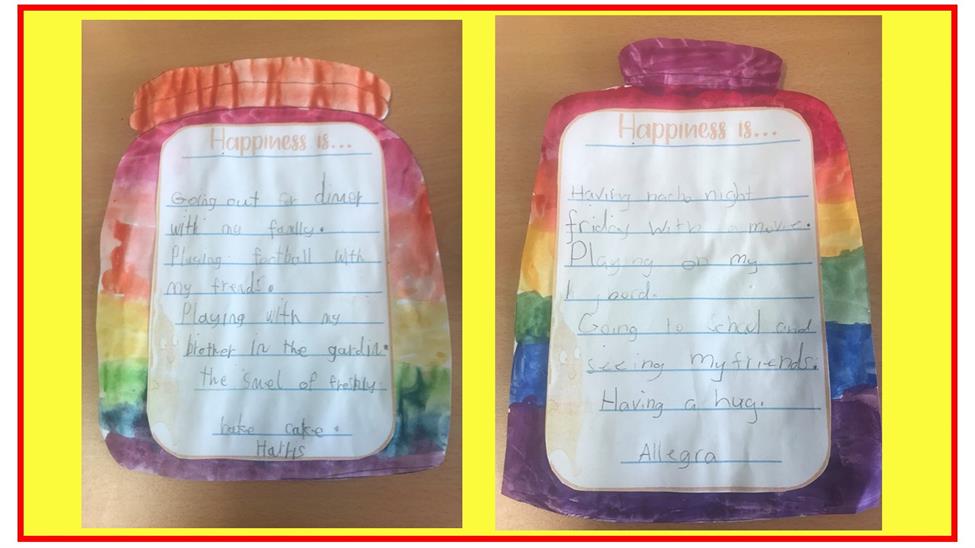 Happiness is...
Going out for dinor
with my family.
Playing football with
my frends.
Playing with my
brother in the gardin.
the smel of freshly
bake cake.
Happiness is...
Having nacho night
friday with a movie.
Playing on my
bord.
Going to school and
seeing my friends.
Having a hug.
Allegra